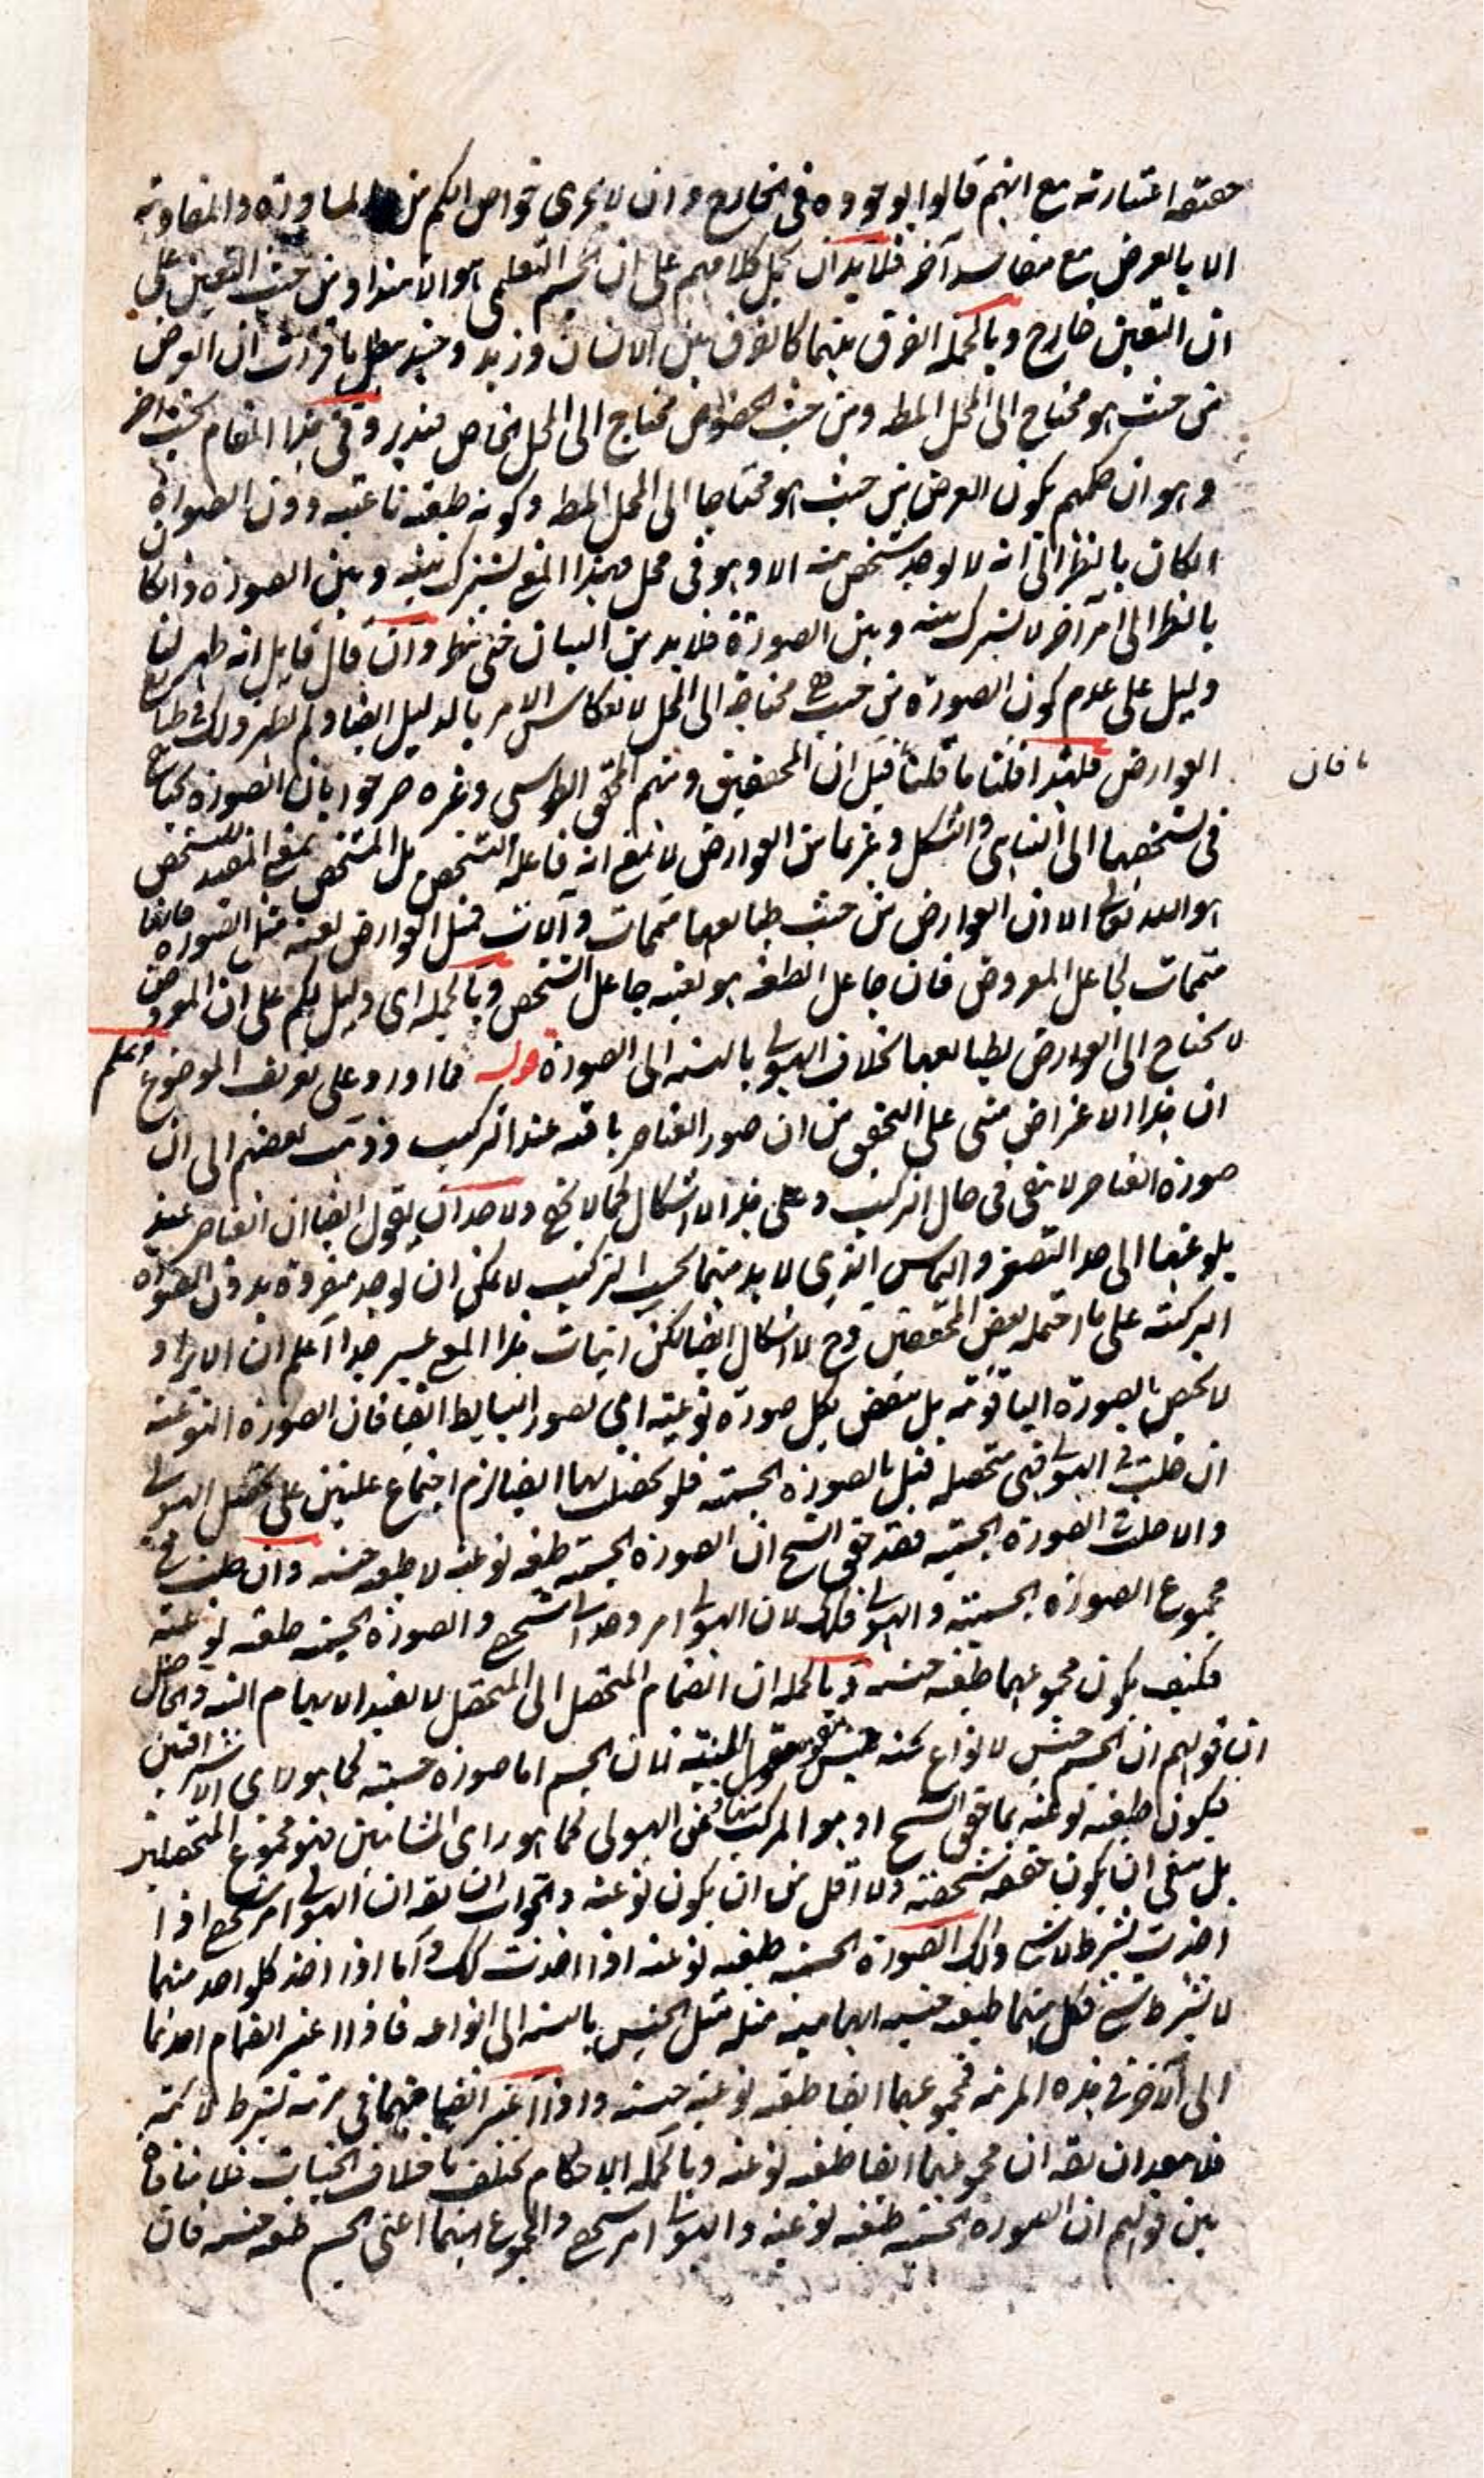 حقيقة اعتبارية مع انهم قالوا بوجوده فى الخارج وان لا يجرى خواص الكم من المساوة والمفاوتة
الا بالعرض مع مفاسد آخر فلابد ان يحمل كلامهم على ان الجسم التعلمى هو الامتداد من حيث التعين على
ان التعين خارج وبالجملة الفرق بينهما كالفرق بين الانسان وزيد وحينئذ بطل ما قررت ان العرض
من حيث هو محتاج الى المحل المط ومن حيث الخصوص محتاج الى المحل الخاص فتدبر وفى هذا المقام بحث آخر
وهو ان حكمهم بكون العرض من حيث هو محتاجا الى المحل المط وكونه طبيعة ناعتية دون الصورة
ان كان بالنظر الى انه لا يوجد شخص منه الا وهو فى محل فهذا المنع يشترك بينه وبين الصورة وان كان
بالنظر الى امر آخر لا يشترك بينه وبين الصورة فلا بد من البيان حتى ينظر وان قال قايل انه ظهر لنا
دليل على عدم كون الصورة من حيث هى محتاجة الى المحل لانعكاس الامر بالدليل ايضا ولم يظهر ذلك فى طبايع
العوارض فلهذا قلنا ما قلنا قيل ان المحققين ومنهم المحقق الطوسى وغيره صرحوا بان الصورة يحتاج
فى تشخصها الى التناهى والشكل وغيرها من العوارض لا بمعنى انه فاعلة التشخص بل المشخص بمعنى المفيد للتشخص
هو الله تعالى الا ان العوارض من حيث طبايعها متممات وآلات فمثل العوارض بعينه مثل الصورة فانها
متممات لجاعل المعروض فان جاعل الطبيعة هو بعينه جاعل التشخص وبالجملة اى دليل لكم على ان المعروض
لا يحتاج الى العوارض بطبايعها بخلاف الهيولى بالنسبة الى الصورة قوله فما اورد على تعريف الموضوع واعلم
ان هذا الاعتراض مبنى على التحقيق من ان صور العناصر باقية عند التركيب وذهب بعضهم الى ان
صورة العناصر لا تبقى فى حال التركيب وعلى هذا لا اشكال كما لا يخفى ولاحد ان يقول ايضا ان العناصر عند
بلوغها الى حد التصغر والتماس الذى لا بد منهما بحسب التركيب لا يمكن ان يوجد مفردة بدون الصورة
التركيبية على ما احتمله بعض المحققين وح لا اشكال ايضا لكن اثبات هذا المنع عسير جدا اعلم ان الايراد
لا يختص بالصورة الياقوتية بل ينتقض بكل صورة نوعية اى بصور البسايط ايضا فان الصورة النوعية
ان حلت فى الهيولى فهى متحصلة قبل بالصورة الجسمية فلو تحصلت بها ايضا لزم اجتماع علتين على تحصل الهيولى
وان حلت الصورة الجسمية فقد حقق الشيخ ان الصورة الجسمية طبيعة نوعية لا طبيعة جنسية وان حلت فى
مجموع الصورة الجسمية والهيولى فكك لان الهيولى امر وحدانى شخصى والصورة الجسمية طبيعة نوعية
فكيف يكون مجموعهما طبيعة جنسية وبالجملة ان انضمام المتحصل الى المتحصل لا يفيد الابهام البتة والحاصل
ان قولهم ان الجسم جنس لانواع تحته ليس بمعقول البتة فان الجسم اما صورة جسمية كما هو راى الاشراقيين
فيكون طبيعة نوعية بما حقق الشيخ او هو المركب منها ومن الهيولى كما هو راى المشائين فهو مجموع المتحصلين
بل ينبغى ان يكون حقيقة شخصية ولا اقل من ان يكون نوعية والجواب ان يقه ان الهيولى امر شخصى اذا
اخذت بشرط لا شئ وكك الصورة الجسمية طبيعة نوعية اذا اخذت كك واما اذا اخذ كل واحد منهما
لا بشرط شئ فكل منهما طبيعة جنسية ابهامية مثله مثل الجنس بالنسبة الى انواعه فاذا اعتبر انضمام احدهما
الى الآخر فى هذه المرتبة فمجموعهما ايضا طبيعة نوعية جنسية واذا اعتبر انضمامهما فى مرتبة بشرط لائية
فلا يبعد ان يقه ان مجموعهما ايضا طبيعة نوعية وبالجملة الاحكام تختلف باختلاف الحيثيات فلا منافاة
بين قولهم ان الصورة الجسمية طبيعة نوعية والهيولى امر شخصى والمجموع منهما اعنى الجسم طبيعة جنسية فان
فان